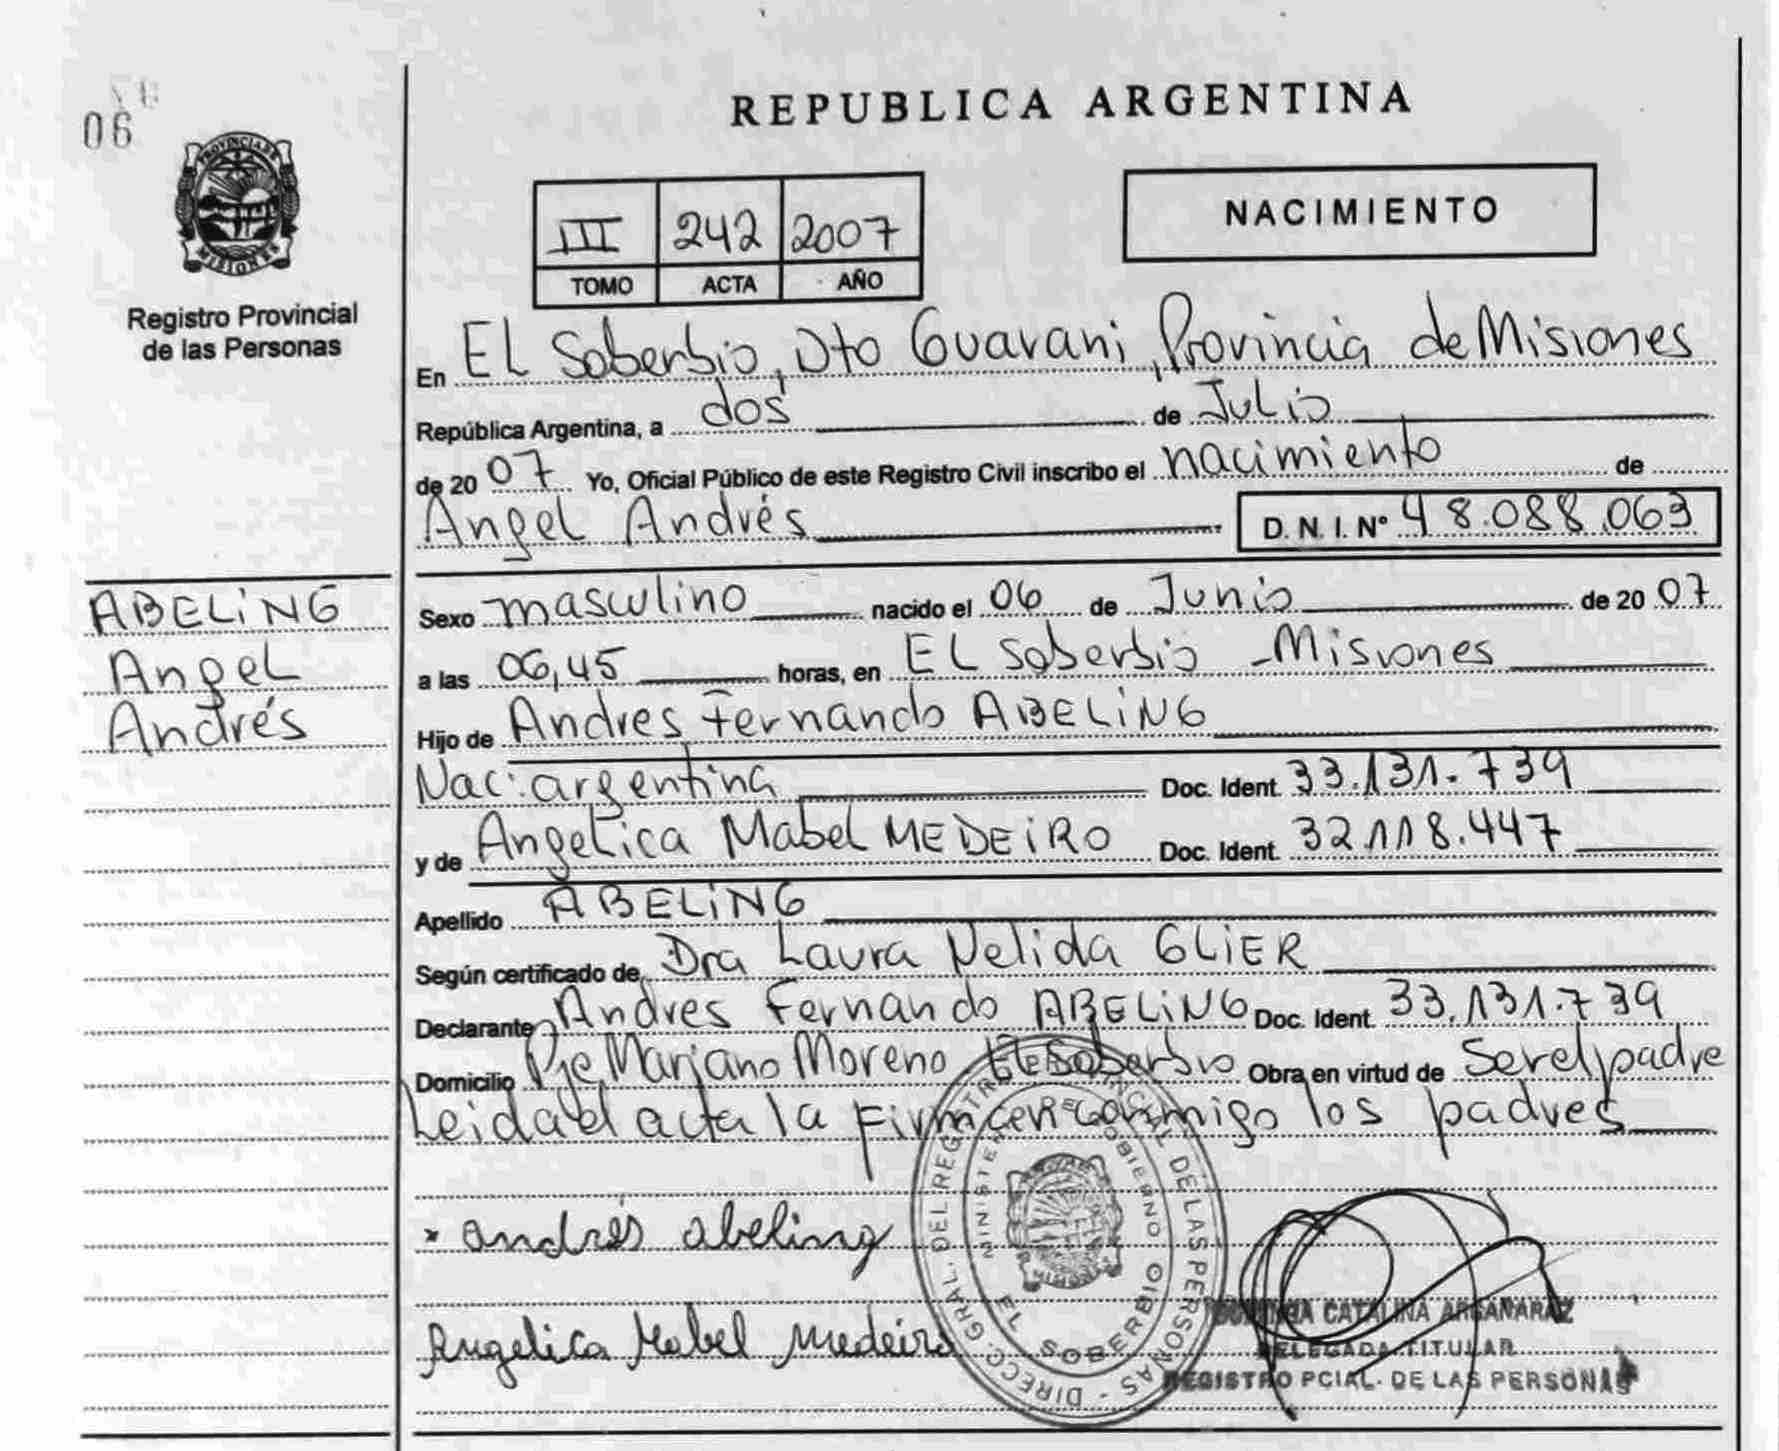 06
PROVINCIA DE
MISIONES
Registro Provincial
de las Personas
REPUBLICA ARGENTINA
III 242 2007
TOMO ACTA AÑO
NACIMIENTO
En EL Soberbio, Dto Guarani, Provincia de Misiones
República Argentina, a dos de Julio
de 2007 Yo, Oficial Público de este Registro Civil inscribo el nacimiento de
Angel Andrés D. N. I. Nº 48.088.063
ABELiNG
Angel
Andrés
Sexo masculino nacido el 06 de Junio de 2007
a las 06,45 horas, en EL Soberbio - Misiones
Hijo de Andres Fernando ABELiNG
Nac: argentina Doc. Ident. 33.131.739
y de Angelica Mabel MEDEiRO Doc. Ident. 32.118.447
Apellido ABELiNG
Según certificado de Dra Laura Nelida GLiER
Declarante Andres Fernando ABELiNG Doc. Ident. 33.131.739
Domicilio Pje Mariano Moreno El Soberbio Obra en virtud de Ser el padre
Leida el acta la Firman conmigo los padres
andrés abeling
Angelica Mabel Medeiro
DIRECC. GRAL. DEL REGISTRO PROVINCIAL DE LAS PERSONAS
MINISTERIO DE GOBIERNO
EL SOBERBIO
MISIONES
CATALINA ARGAÑARAZ
DELEGADA TITULAR
REGISTRO PCIAL. DE LAS PERSONAS